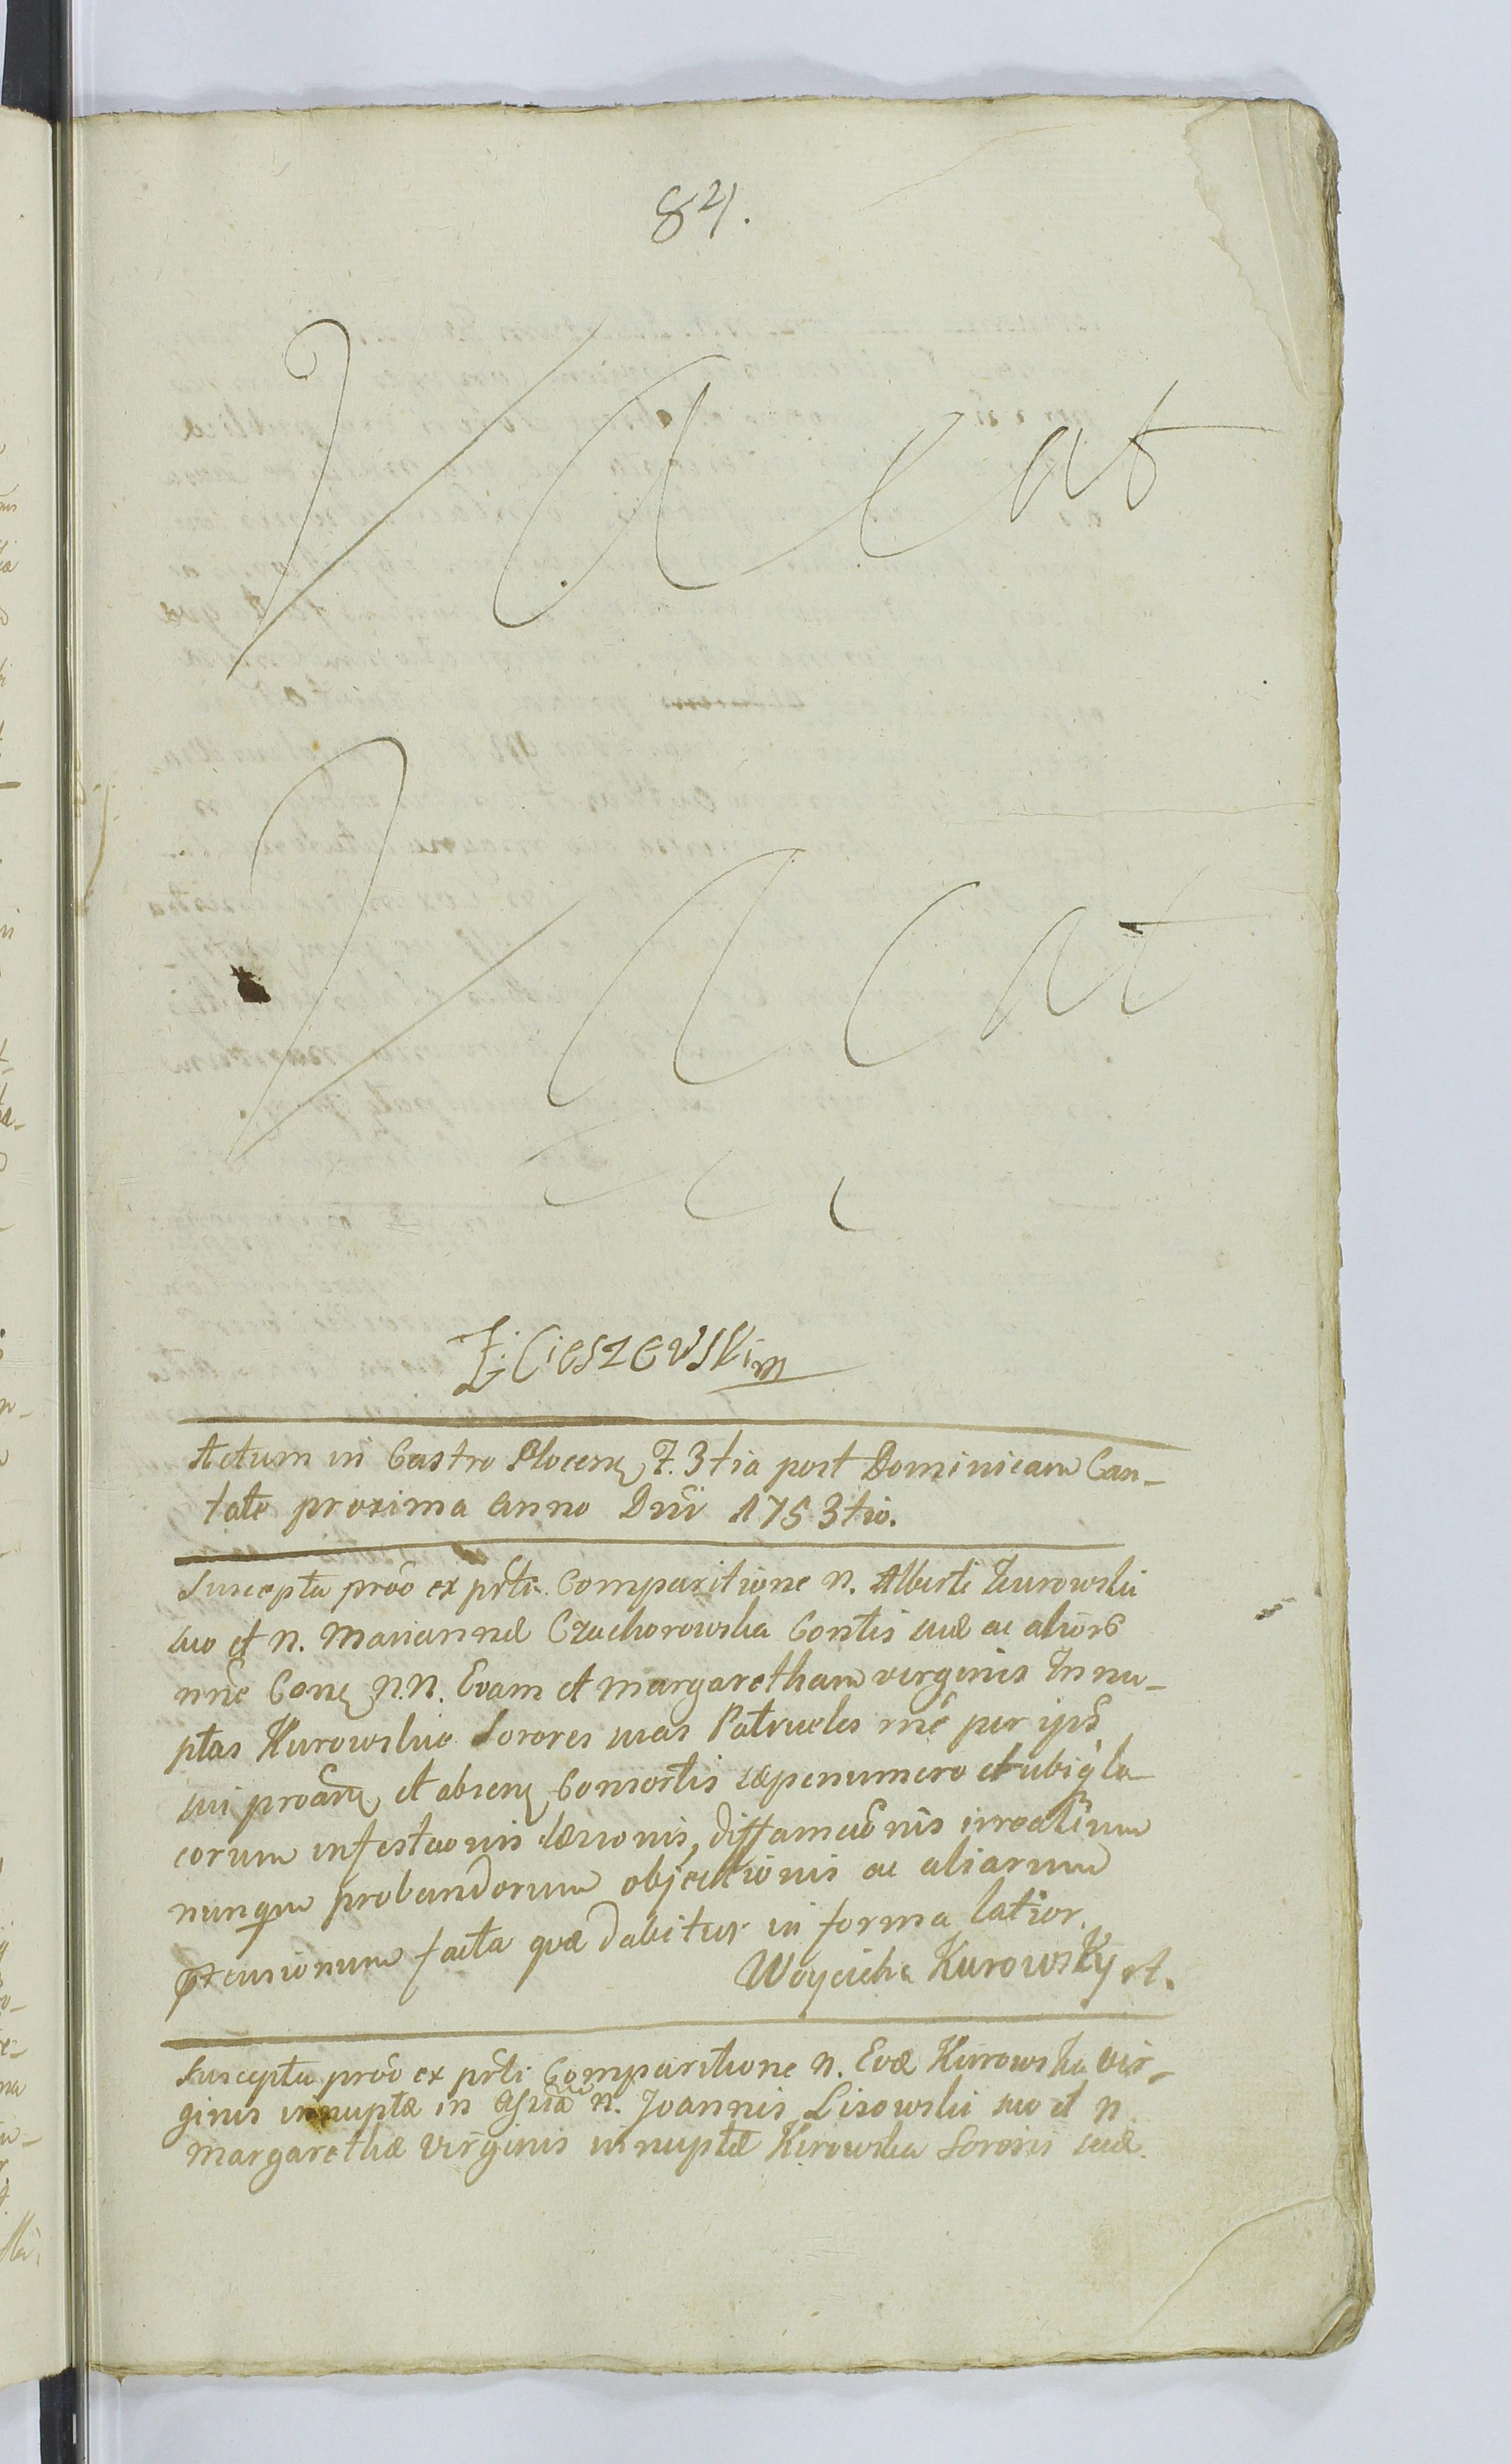 84.
Vacat
Vacat
Cieszewski m
Actum in Castro Plocen F. 3tia post Dominicam Can-
tate proxima Anno Dni 1753tio.
Suscepta pro͠o ex prti Comparitione N. Alberti Kurowski
suo et N. Mariannæ Czachorowska Contis suæ ac alior
nne Con N.N. Evam et Margaretham virginis Innu-
ptas Kurowskie Sorores suas Patrueles rne per ips
sui proan et absen Consortis sæpenumero et ubiq la
eorum infestaonis læsionis, diffamaonis irrealium
nunqm probandorum objectionis ac aliarum
ptensionum facta quæ dabitur in forma latior.
Woyciech Kurowsky
Suscepta pro͠o ex prti Comparitione N. Evæ Kurowska vir-
ginis innuptæ in Asnia N. Joannis Lisowski suo et N
Margarethæ virginis innuptæ Kurowska Sororis suæ